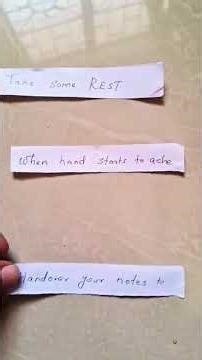 Take some REST
When hand starts to ache
Handover your notes to